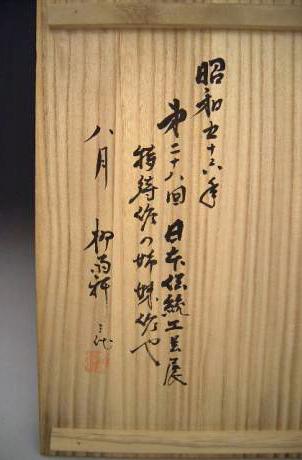 昭和五十六年
第二十八回 日本伝統工芸展
作の姉妹作也
八月 柳 三代